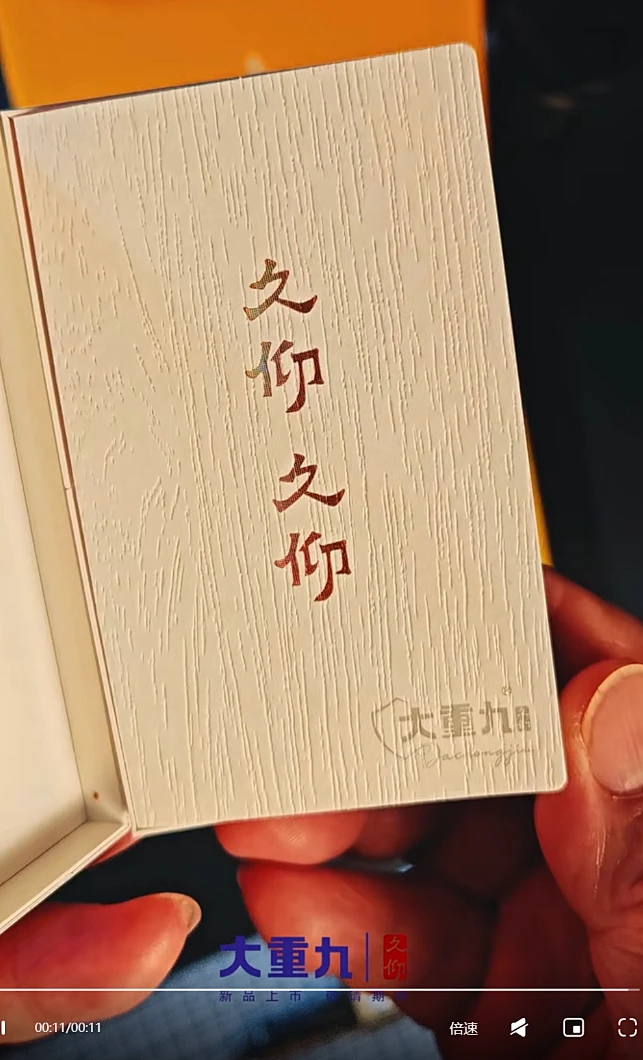 久仰
久仰
大重九
Dachongjiu
大重九 久仰
新品上市 敬请期待
00:11/00:11
倍速